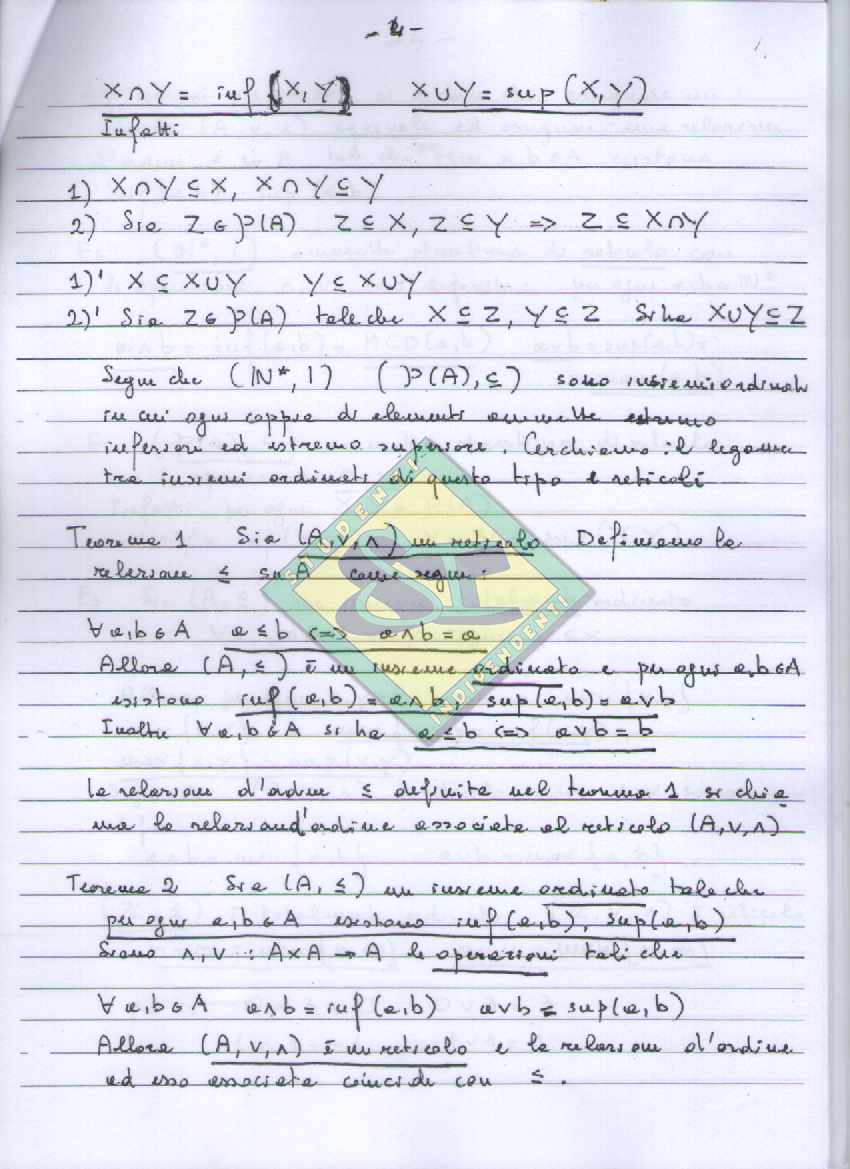 - 4 -
X∩Y = inf {X, Y} X∪Y = sup (X, Y)
Infatti
1) X∩Y ⊆ X, X∩Y ⊆ Y
2) Sia Z ∈ P(A) Z ⊆ X, Z ⊆ Y => Z ⊆ X∩Y
1)' X ⊆ X∪Y Y ⊆ X∪Y
2)' Sia Z ∈ P(A) tale che X ⊆ Z, Y ⊆ Z Si ha X∪Y ⊆ Z
Segue che (ℕ*, |) (P(A), ⊆) sono insiemi ordinati
in cui ogni coppia di elementi ammette estremo
inferiore ed estremo superiore. Cerchiamo il legame
tra insiemi ordinati di questo tipo e reticoli
Teorema 1 Sia (A, ∨, ∧) un reticolo Definiamo la
relazione ≤ su A come segue:
∀ a, b ∈ A a ≤ b <=> a∧b = a
Allora (A, ≤) è un insieme ordinato e per ogni a, b ∈ A
esistono inf (a, b) = a∧b, sup (a, b) = a∨b
Inoltre ∀ a, b ∈ A si ha a ≤ b <=> a∨b = b
La relazione d'ordine ≤ definita nel teorema 1 si chia
ma la relazione d'ordine associata al reticolo (A, ∨, ∧)
Teorema 2 Sia (A, ≤) un insieme ordinato tale che
per ogni a, b ∈ A esistono inf (a, b), sup (a, b)
Siano ∧, ∨ : A×A → A le operazioni tali che
∀ a, b ∈ A a∧b = inf (a, b) a∨b = sup (a, b)
Allora (A, ∨, ∧) è un reticolo e la relazione d'ordine
ad esso associata coincide con ≤ .
STUDENTI
INDIPENDENTI